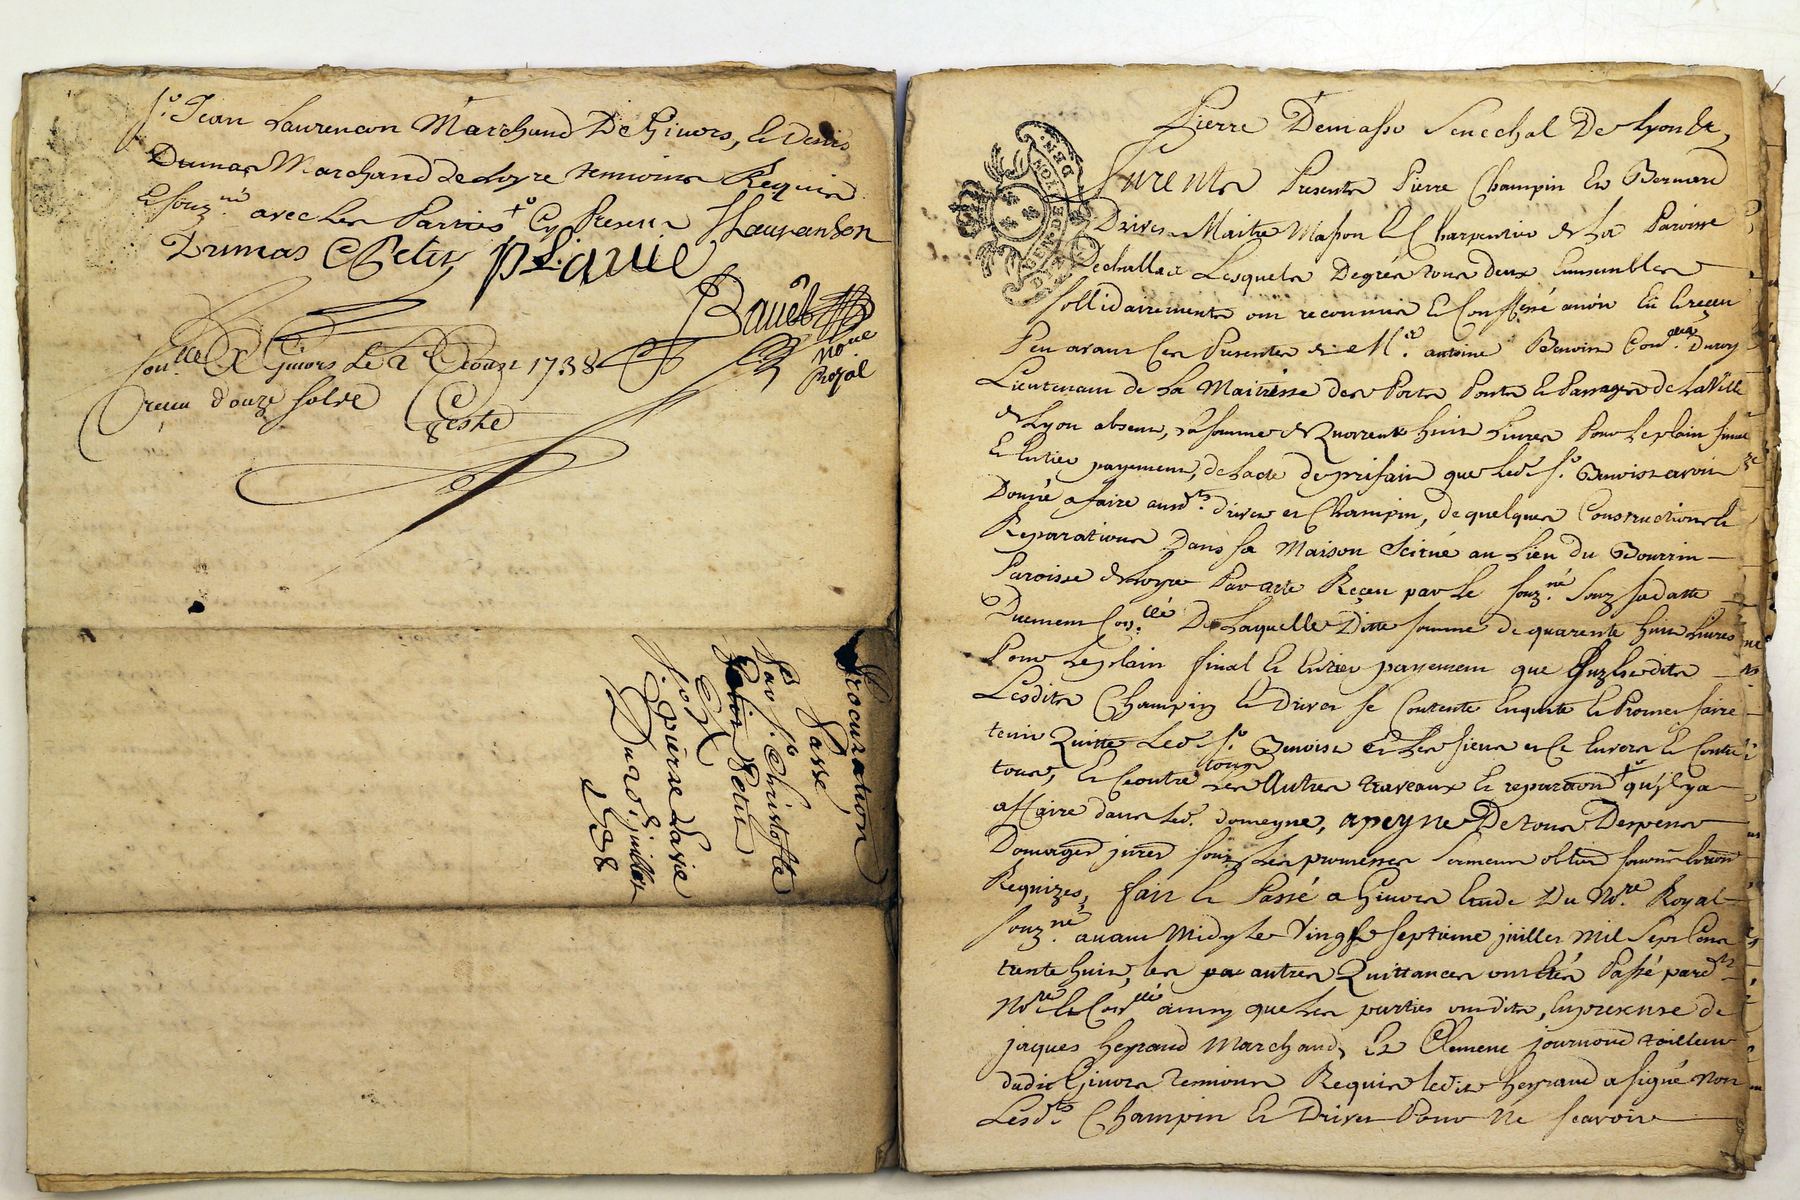 Sr. Jean Laurencon Marchand De Givors, et Denis
Dumas Marchand de Loyre temoins Requis
& souz.né avec les Parties + Cy Presens JLauranson
Dumas CPetit PLavie
Bauet
no.re
Royal
con.llé A Givors le 2 e aoust 1738
receu douze sols
Ceste
Procuration
Passé
Par sr. Christofle
Petit
A
sr. pierre Lavie
Du 20 juillet
1738
Pierre Demasso Senechal De Lyon &c,
furents Presents Pierre Champin et Bernard
Drivet Maitre Masson et Charpentier de La Paroisse
Dechallas Lesquels Degrés tous deux Ensembles
sollidairements ont reconnus et Confessé avoir Eü et receu
Peu avant Ces Presentes de Mr. antoine Benoist Con.er Du roy
Lieutenant de La Maitrisse des Ports Ponts et Passages de La Ville
de Lyon absent, la somme de Quarrente huit Livres Pour le plain final
et Entier payement, de lacte de prifait que Led. sr. Benoist avoit
Donné a faire ausd.ts drivet et Champin, de quelques Constructions et
Reparations Dans sa Maison Scitué au Lieu du Bourrin
Paroisse de Loyre Par acte Receu par Le souz.né souz sa datte
Duement Con.llé De Laquelle Ditte somme de quarente huit Livres
Pour le plain final et Entier payement que
Lesdits Champin et Drivet se Contente Enquitte et Promet faire
tenir Quitte Led. sr. Benoist et Les siens et Ce Envers et Contre
tous, et Contre tous Les Autres travaux et reparation + qu'il y a
affaire dans Led. domeyne, apeyne De tous Despens
Domages jnres souz Les promesses serments oblion
Requizes, fait et Passé a Givors Etude Du No.re Royal
souz.né avant Midy Le Vingt septieme juillet Mil Sept Cens
trente huit, les autres Quittances ont Etés Passé pard.t
No.re et Con.llé ainsy que Les parties ont dits, En presense de
jaques heyraud Marchand, Et Clement journoud tailleur
dudit Givors temoins Requis ledit heyraud a signé Non
Lesd.ts Champin et Drivet Pour Ne scavoir
DEN.
GEN. DE LYON